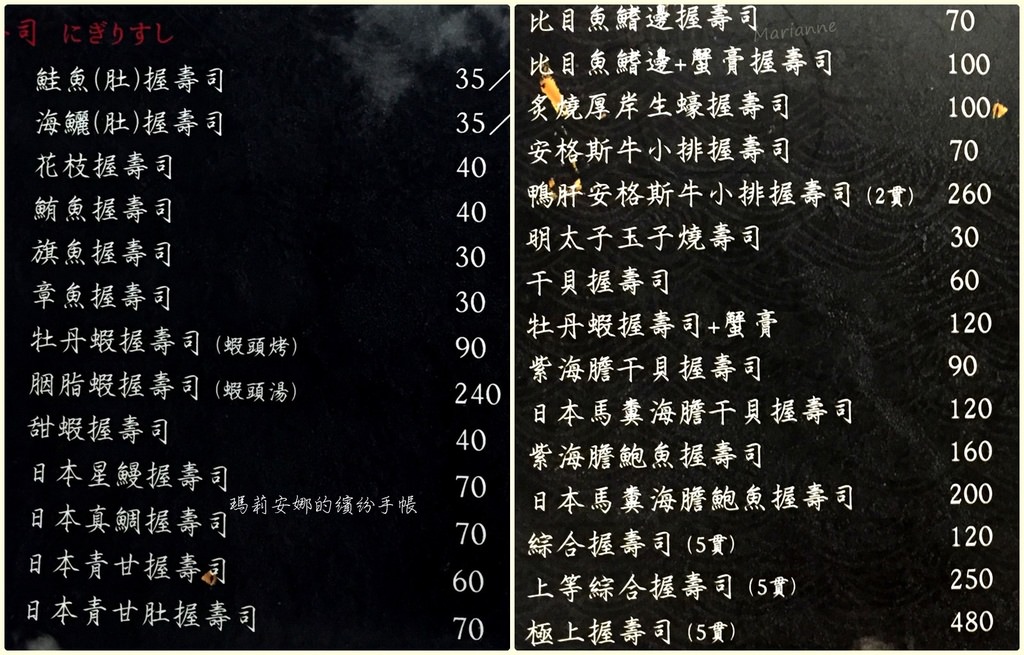 司 にぎりすし
鮭魚(肚)握壽司 35/
海鱺(肚)握壽司 35/
花枝握壽司 40
鮪魚握壽司 40
旗魚握壽司 30
章魚握壽司 30
牡丹蝦握壽司(蝦頭烤) 90
胭脂蝦握壽司(蝦頭湯) 240
甜蝦握壽司 40
日本星鰻握壽司 70
瑪莉安娜的繽紛手帳
日本真鯛握壽司 70
日本青甘握壽司 60
日本青甘肚握壽司 70
比目魚鰭邊握壽司 70
Marianne
比目魚鰭邊+蟹膏握壽司 100
炙燒厚岸生蠔握壽司 100
安格斯牛小排握壽司 70
鴨肝安格斯牛小排握壽司(2貫) 260
明太子玉子燒壽司 30
干貝握壽司 60
牡丹蝦握壽司+蟹膏 120
紫海膽干貝握壽司 90
日本馬糞海膽干貝握壽司 120
紫海膽鮑魚握壽司 160
日本馬糞海膽鮑魚握壽司 200
綜合握壽司(5貫) 120
上等綜合握壽司(5貫) 250
極上握壽司(5貫) 480